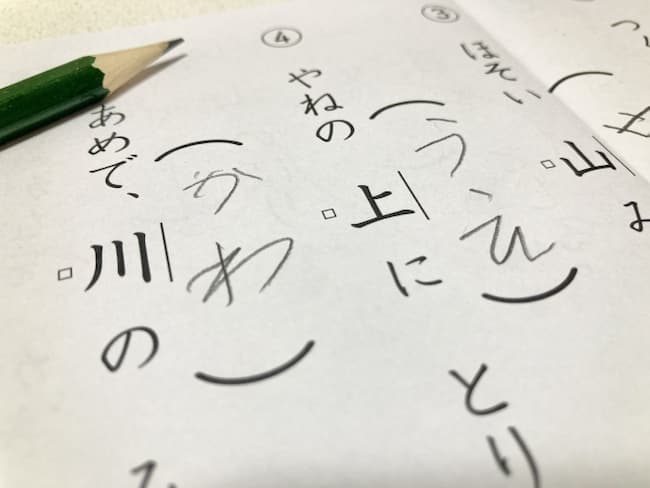 ③
ほそい山
④
(うえ)
やねの上にとり
(かわ)
あめで、川の